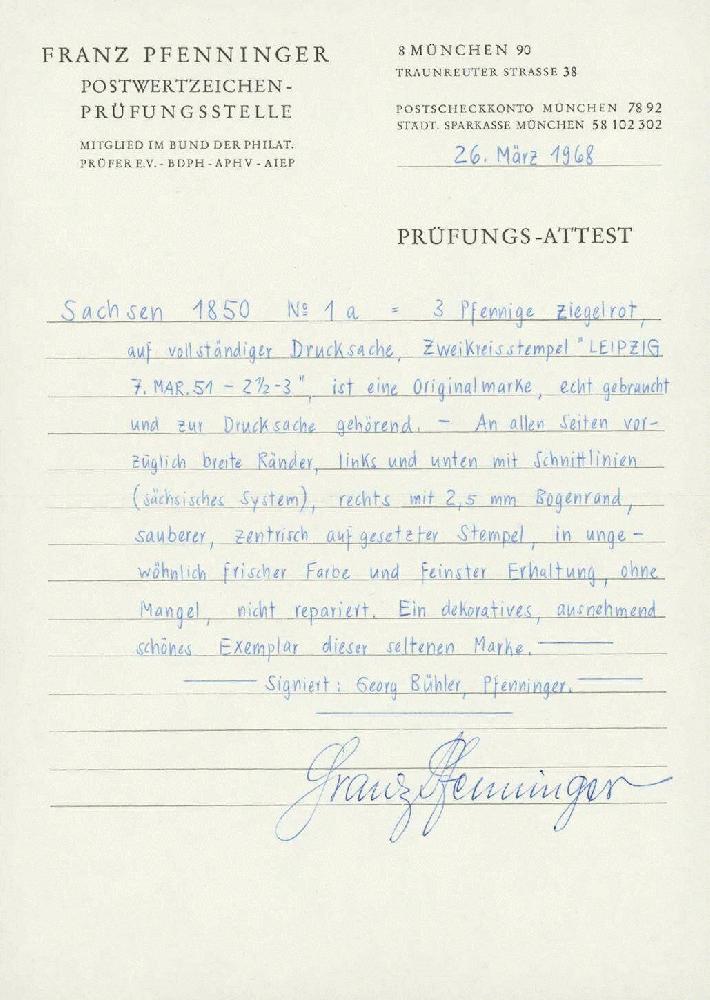 FRANZ PFENNINGER
POSTWERTZEICHEN-
PRÜFUNGSSTELLE
MITGLIED IM BUND DER PHILAT.
PRÜFER E.V. - BDPH - APHV - AIEP
8 MÜNCHEN 90
TRAUNREUTER STRASSE 38
POSTSCHECKKONTO MÜNCHEN 78 92
STÄDT. SPARKASSE MÜNCHEN 58 102 302
26. März 1968
PRÜFUNGS-ATTEST
Sachsen 1850 No 1 a = 3 Pfennige ziegelrot,
auf vollständiger Drucksache, Zweikreisstempel "LEIPZIG
7. MAR. 51 - 2½-3", ist eine Originalmarke, echt gebraucht
und zur Drucksache gehörend. - An allen Seiten vor-
züglich breite Ränder, links und unten mit Schnittlinien
(sächsisches System), rechts mit 2,5 mm Bogenrand,
sauberer, zentrisch aufgesetzter Stempel, in unge-
wöhnlich frischer Farbe und feinster Erhaltung, ohne
Mangel, nicht repariert. Ein dekoratives, ausnehmend
schönes Exemplar dieser seltenen Marke.
Signiert: Georg Bühler, Pfenninger.
Franz Pfenninger